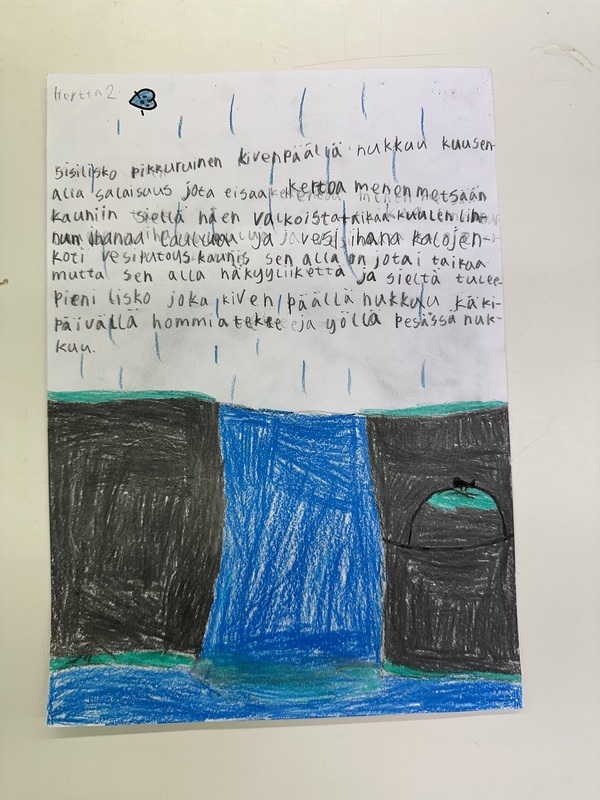 Herttaz
sisilisko pikkuruinen kivenpäällä nukkuu kuusen-
alla salaisuus jota eisaa kertoa menen metsään
kauniin siellä näen valkoista taikaa kuulen lin-
nun ihanaa laulua ja vesi ihana kalojen-
koti vesiputous kaunis sen alla on jotai taikaa
mutta sen alla näkyyliikettä ja sieltä tulee-
pieni lisko joka kiven päällä nukkuu käki-
päivällä hommia tekee ja yöllä pesässä nuk-
kuu.